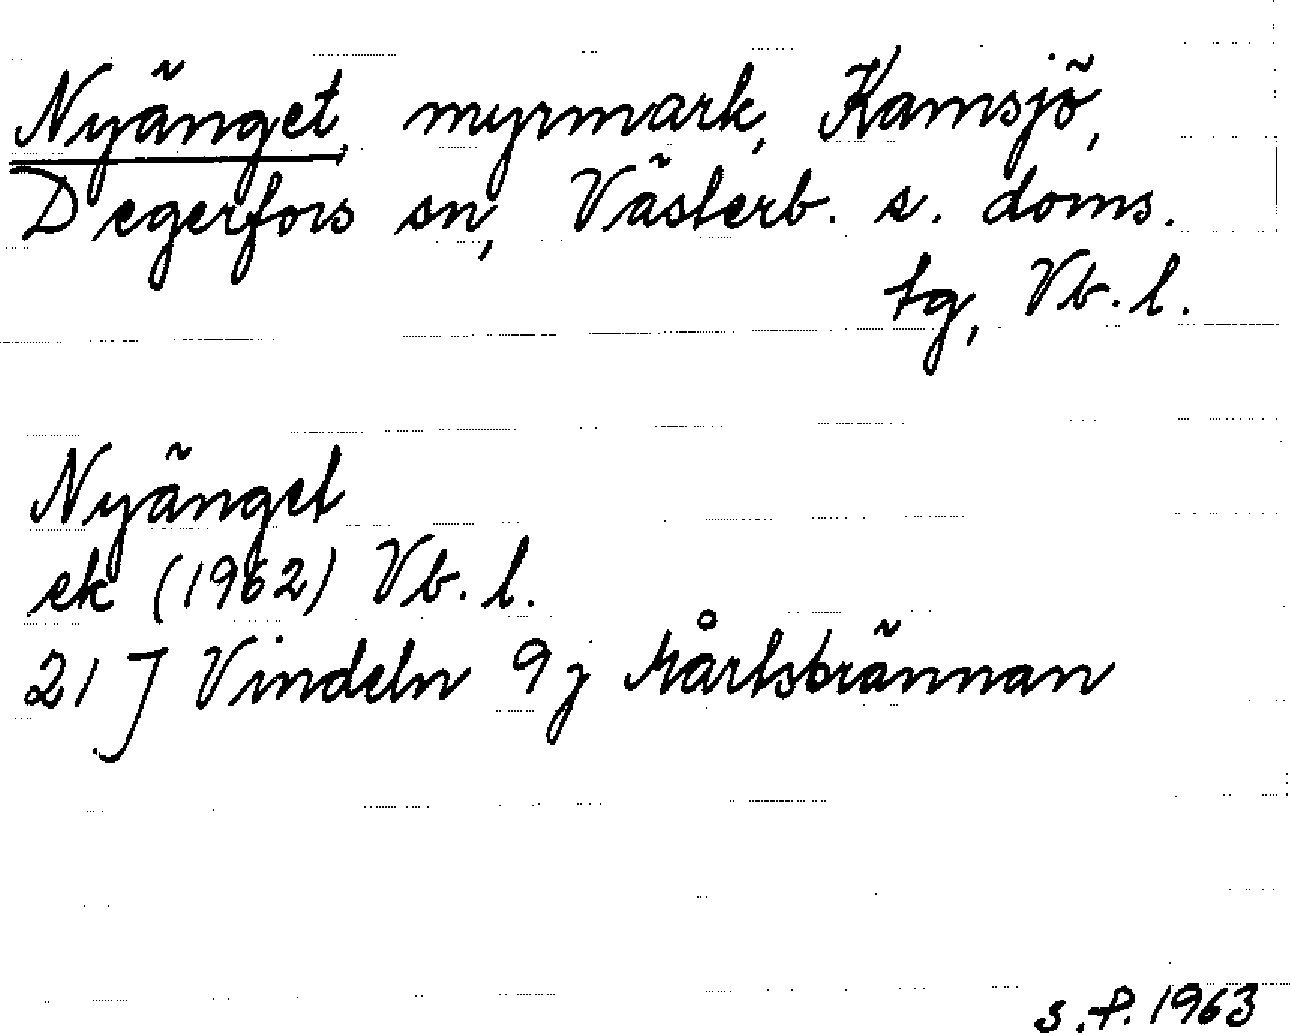 Nyänget, myrmark, Kamsjö,
Degerfors sn, Västerb. s. doms.
tg, Vb. l.
Nyänget
ek (1962) Vb. l.
21 J Vindeln 9j Mårtsbrännan
s.f. 1963